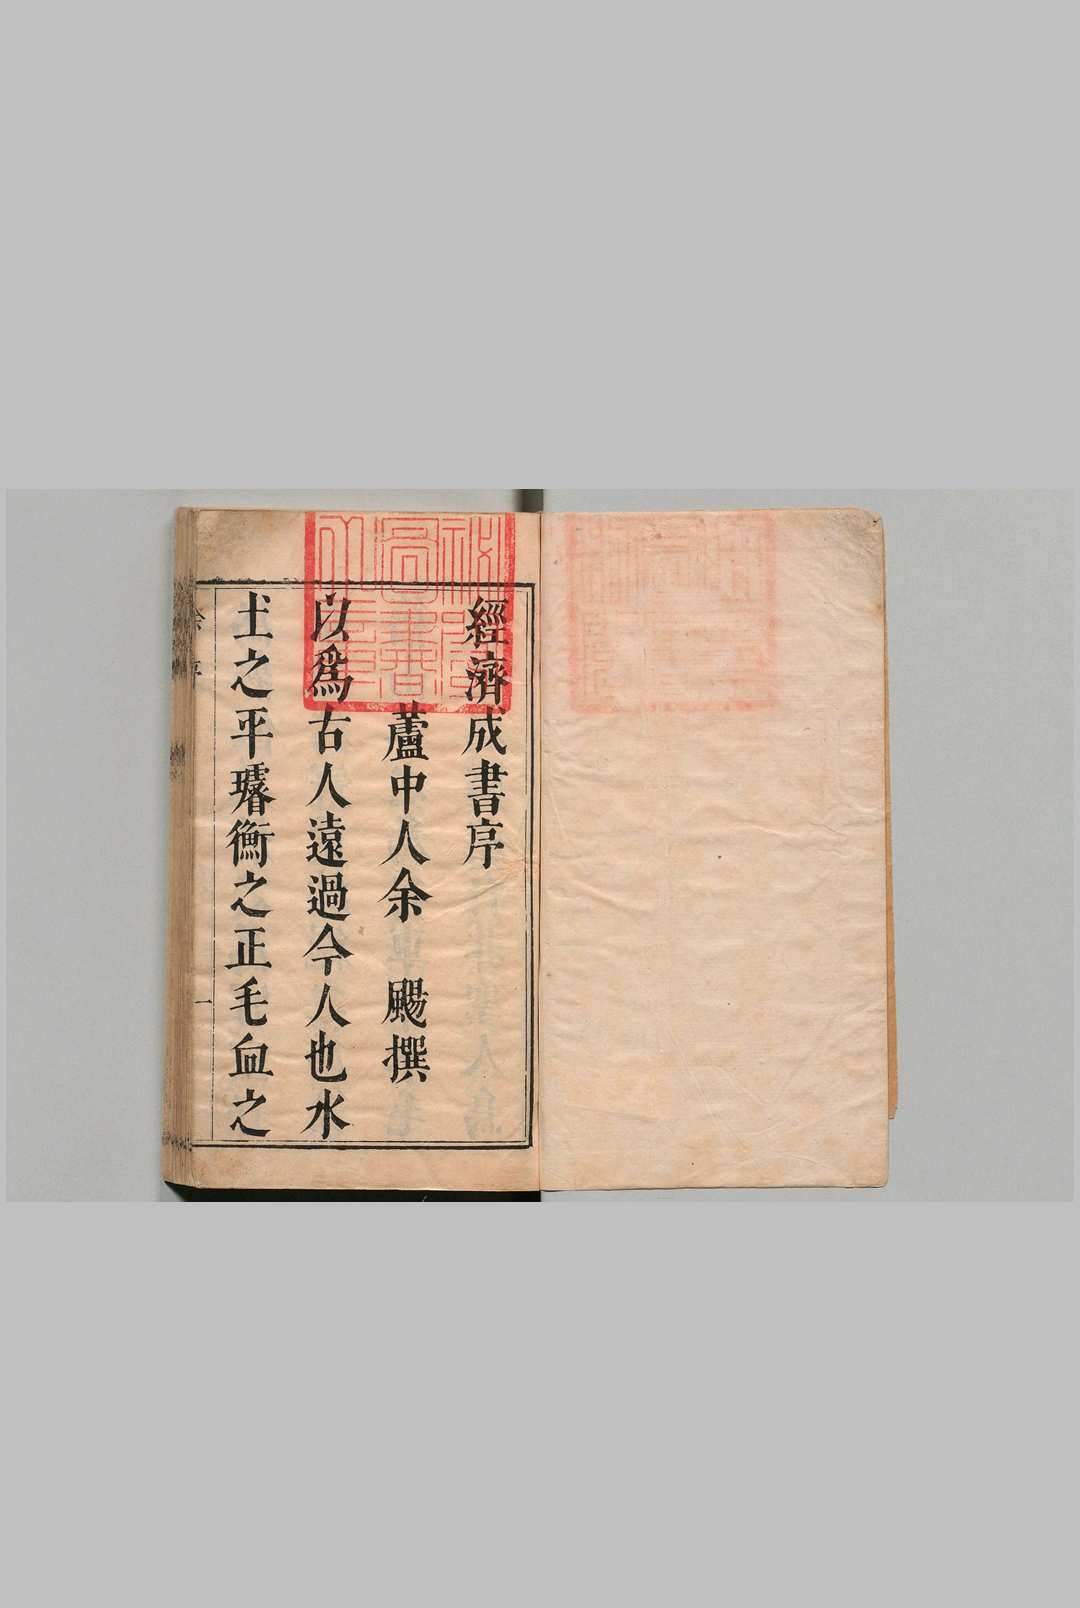 經濟成書序
蘆中人余 颺撰
以爲古人遠過今人也水
土之平璿衡之正毛血之
余序
一
秘閣圖書之章